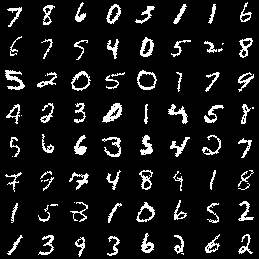 7 8 6 0 3 1 1 6
6 7 5 4 0 5 2 8
5 2 0 5 0 1 7 9
4 2 3 0 1 4 5 8
5 6 6 3 5 4 2 7
7 9 7 4 8 9 1 8
1 5 3 1 0 6 5 2
1 3 9 3 6 2 6 2